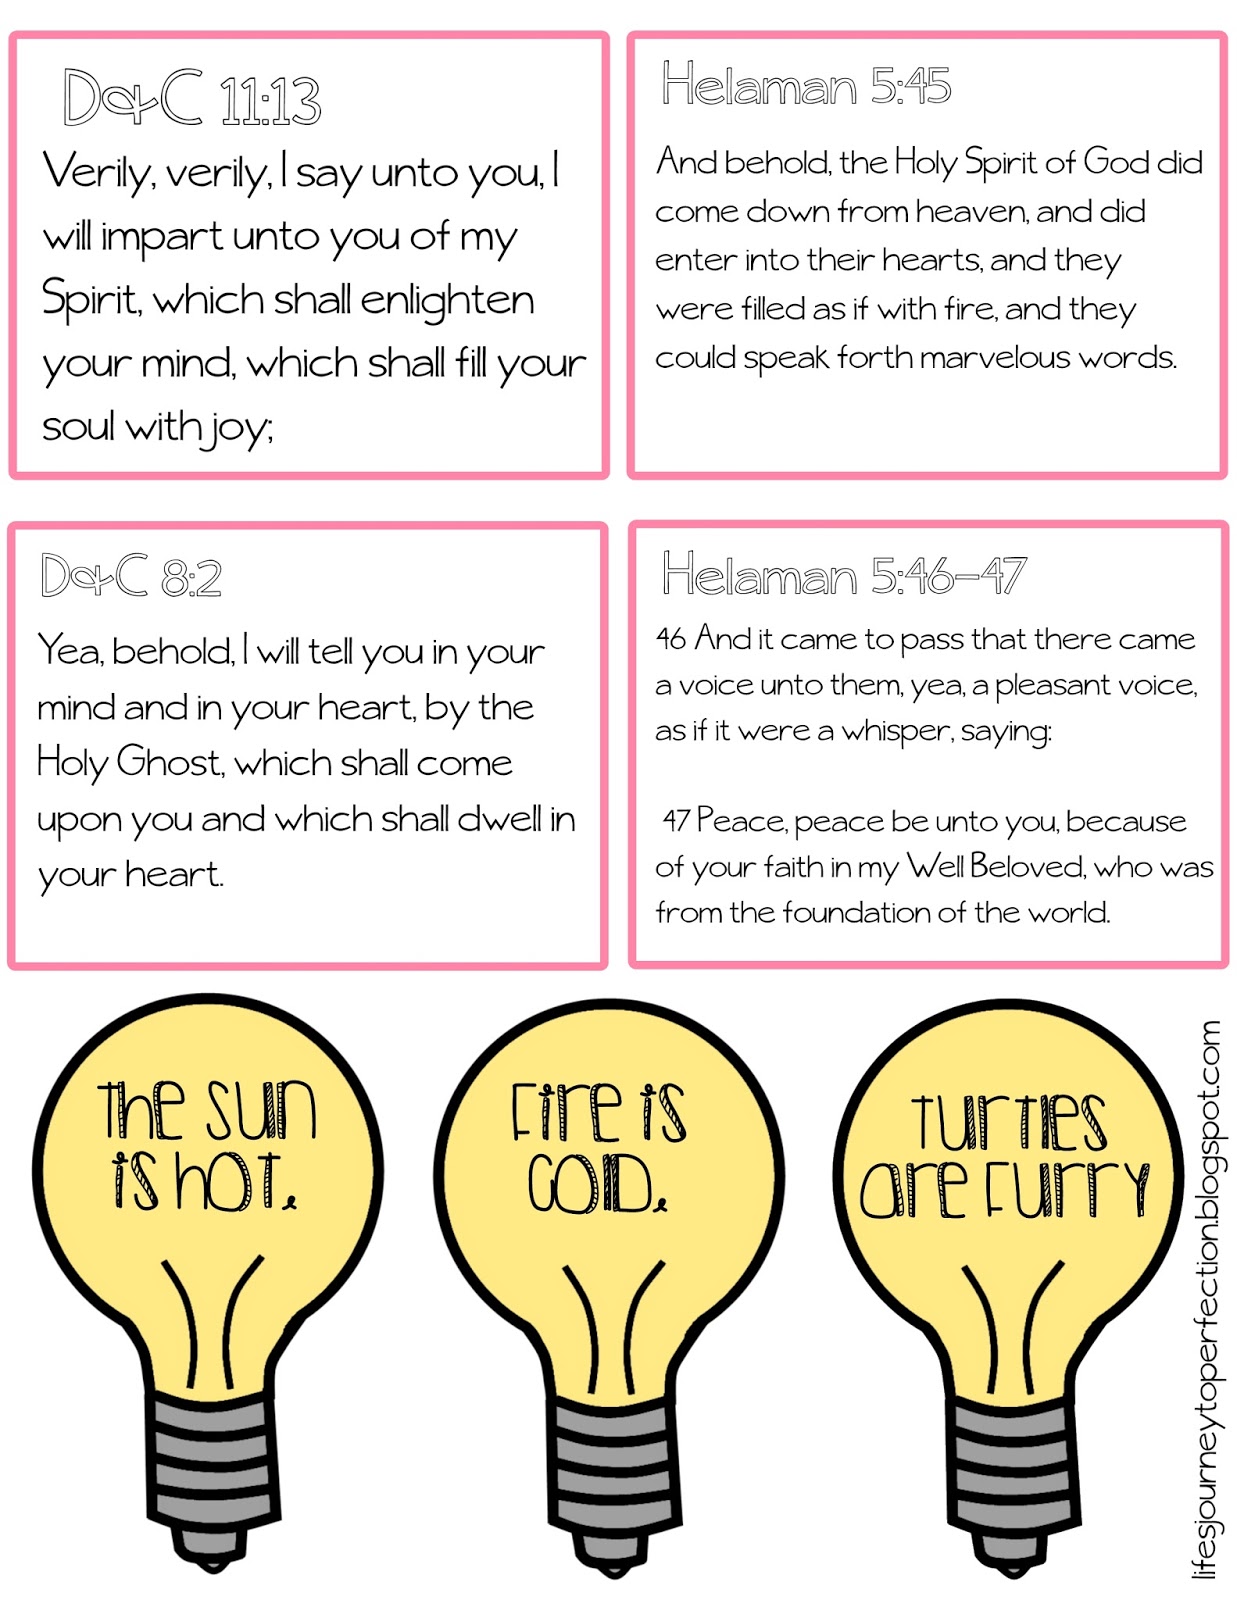 D&C 11:13
Verily, verily, I say unto you, I
will impart unto you of my
Spirit, which shall enlighten
your mind, which shall fill your
soul with joy;
Helaman 5:45
And behold, the Holy Spirit of God did
come down from heaven, and did
enter into their hearts, and they
were filled as if with fire, and they
could speak forth marvelous words.
D&C 8:2
Yea, behold, I will tell you in your
mind and in your heart, by the
Holy Ghost, which shall come
upon you and which shall dwell in
your heart.
Helaman 5:46-47
46 And it came to pass that there came
a voice unto them, yea, a pleasant voice,
as if it were a whisper, saying:
47 Peace, peace be unto you, because
of your faith in my Well Beloved, who was
from the foundation of the world.
The sun
is hot.
Fire is
cold.
Turtles
are furry
lifesjourneytoperfection.blogspot.com